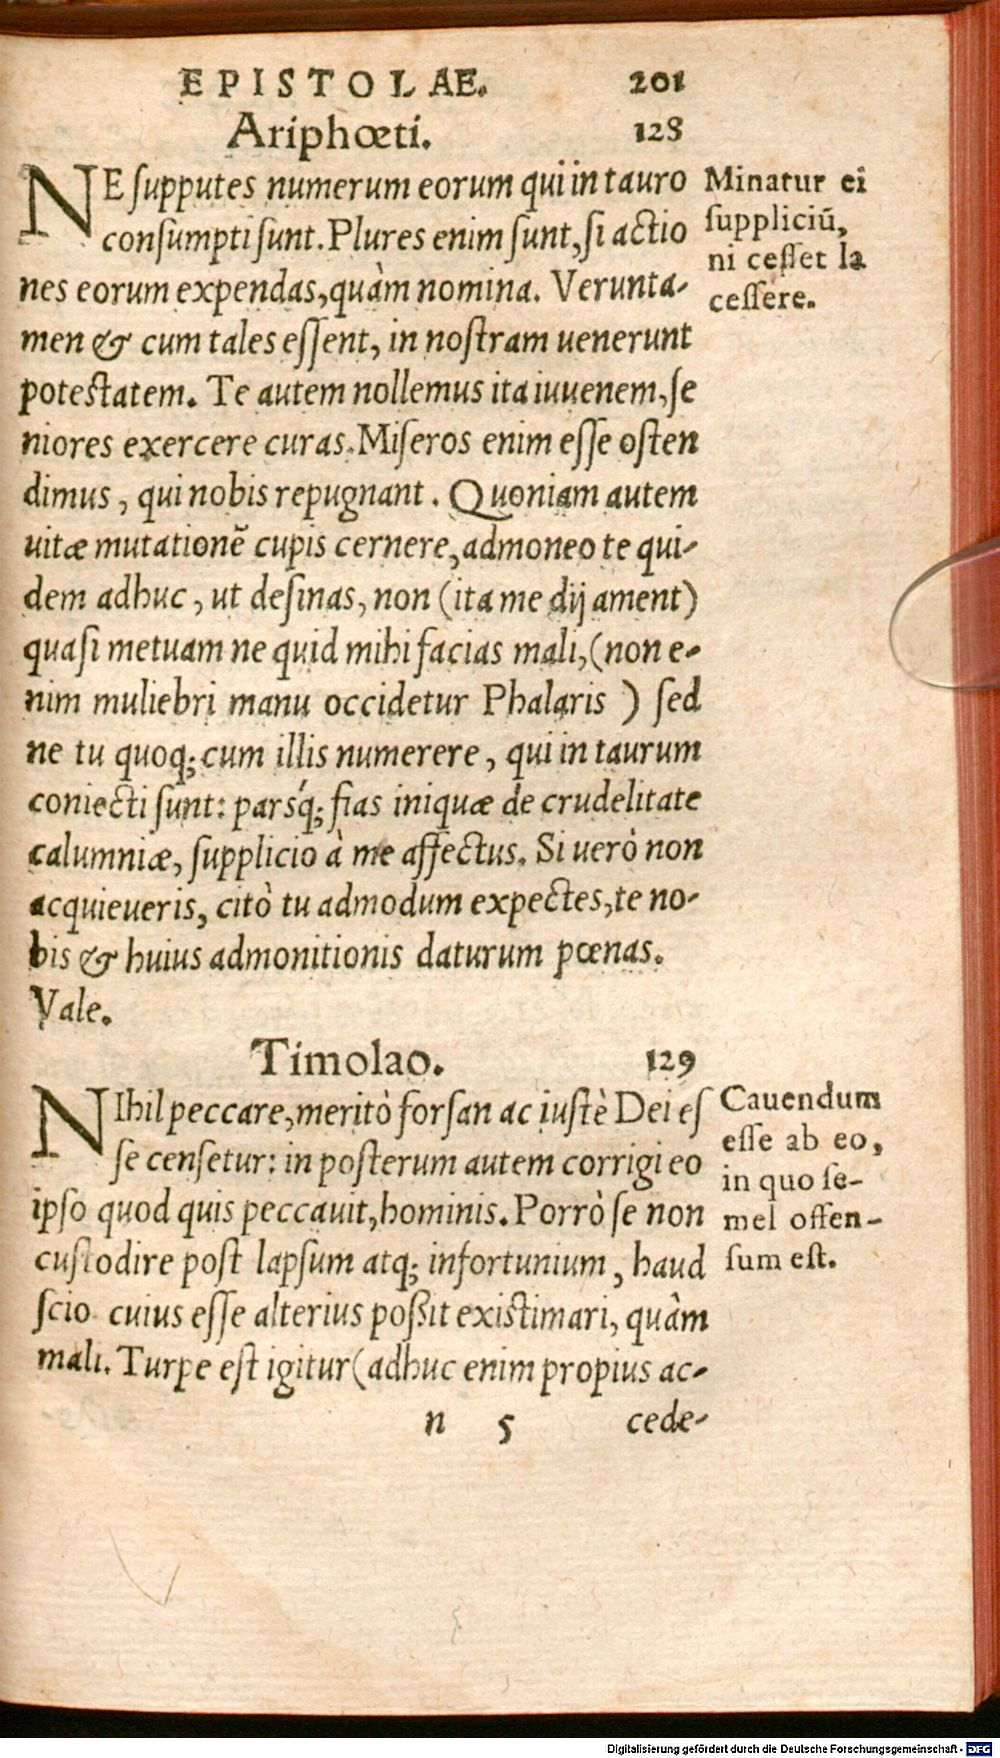 EPISTOLAE. 201
Ariphœti. 128
NE supputes numerum eorum qui in tauro
consumpti sunt. Plures enim sunt, si actio
nes eorum expendas, quàm nomina. Verunta-
men & cum tales essent, in nostram uenerunt
potestatem. Te autem nollemus ita iuuenem, se
niores exercere curas. Miseros enim esse osten
dimus, qui nobis repugnant. Quoniam autem
uitæ mutationē cupis cernere, admoneo te qui-
dem adhuc, ut desinas, non (ita me dij ament)
quasi metuam ne quid mihi facias mali, (non e-
nim muliebri manu occidetur Phalaris) sed
ne tu quoq; cum illis numerere, qui in taurum
coniecti sunt: parsq́; fias iniquæ de crudelitate
calumniæ, supplicio à me affectus. Si uerò non
acquieueris, citò tu admodum expectes, te no-
bis & huius admonitionis daturum pœnas.
Vale.
Minatur ei
suppliciū,
ni cesset la
cessere.
Timolao. 129
NIhil peccare, meritò forsan ac iustè Dei es
se censetur: in posterum autem corrigi eo
ipso quod quis peccauit, hominis. Porrò se non
custodire post lapsum atq; infortunium, haud
scio cuius esse alterius poßit existimari, quàm
mali. Turpe est igitur (adhuc enim propius ac-
Cauendum
esse ab eo,
in quo se-
mel offen-
sum est.
n 5 cede-
Digitalisierung gefördert durch die Deutsche Forschungsgemeinschaft - DFG